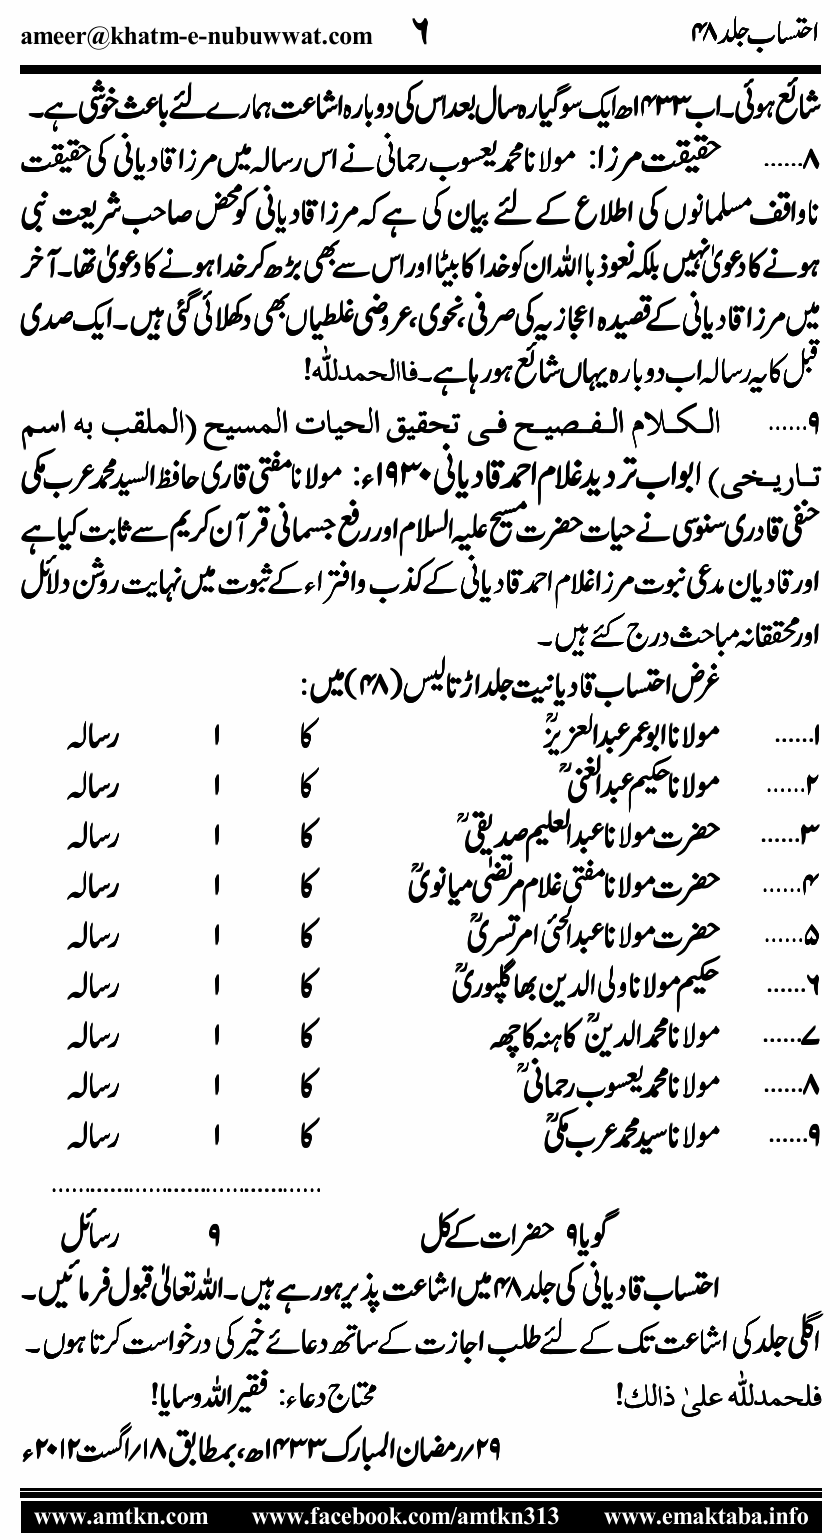 احتساب جلد ۴۸ ۶ ameer@khatm-e-nubuwwat.com
شائع ہوئی۔ اب ۱۴۳۳ھ ایک سو گیارہ سال بعد اس کی دوبارہ اشاعت ہمارے لئے باعث خوشی ہے۔
۸...... حقیقت مرزا: مولانا محمد یعسوب رحمانی نے اس رسالہ میں مرزا قادیانی کی حقیقت
ناواقف مسلمانوں کی اطلاع کے لئے بیان کی ہے کہ مرزا قادیانی کو محض صاحب شریعت نبی
ہونے کا دعویٰ نہیں بلکہ نعوذ باللہ ان کو خدا کا بیٹا اور اس سے بھی بڑھ کر خدا ہونے کا دعویٰ تھا۔ آخر
میں مرزا قادیانی کے قصیدہ اعجازیہ کی صرفی، نحوی، عروضی غلطیاں بھی دکھلائی گئی ہیں۔ ایک صدی
قبل کا یہ رسالہ اب دوبارہ یہاں شائع ہو رہا ہے۔ فاالحمدللہ!
۹...... الکلام الفصیح فی تحقیق الحیات المسیح (الملقب بہ اسم
تاریخی) ابواب تردید غلام احمد قادیانی ۱۹۳۰ء: مولانا مفتی قاری حافظ السید محمد عرب مکی
حنفی قادری سنوسی نے حیات حضرت مسیح علیہ السلام اور رفع جسمانی قرآن کریم سے ثابت کیا ہے
اور قادیان مدعی نبوت مرزا غلام احمد قادیانی کے کذب وافتراء کے ثبوت میں نہایت روشن دلائل
اور محققانہ مباحث درج کئے ہیں۔
غرض احتساب قادیانیت جلد اڑتالیس (۴۸) میں:
۱...... مولانا ابو عمر عبدالعزیزؒ کا ۱ رسالہ
۲...... مولانا حکیم عبدالغنیؒ کا ۱ رسالہ
۳...... حضرت مولانا عبدالعلیم صدیقیؒ کا ۱ رسالہ
۴...... حضرت مولانا مفتی غلام مرتضٰی میانویؒ کا ۱ رسالہ
۵...... حضرت مولانا عبدالحئی امرتسریؒ کا ۱ رسالہ
۶...... حکیم مولانا ولی الدین بھاگلپوریؒ کا ۱ رسالہ
۷...... مولانا محمد الدینؒ کاہنہ کاچھہ کا ۱ رسالہ
۸...... مولانا محمد یعسوب رحمانیؒ کا ۱ رسالہ
۹...... مولانا سید محمد عرب مکیؒ کا ۱ رسالہ
..........................................
گویا ۹ حضرات کے کل ۹ رسائل
احتساب قادیانی کی جلد ۴۸ میں اشاعت پذیر ہو رہے ہیں۔ اللہ تعالیٰ قبول فرمائیں۔
اگلی جلد کی اشاعت تک کے لئے طلب اجازت کے ساتھ دعائے خیر کی درخواست کرتا ہوں۔
فلحمدللہ علیٰ ذالك! محتاج دعاء: فقیر اللہ وسایا!
۲۹؍رمضان المبارک ۱۴۳۳ھ، بمطابق ۱۸؍اگست ۲۰۱۲ء
www.amtkn.com www.facebook.com/amtkn313 www.emaktaba.info